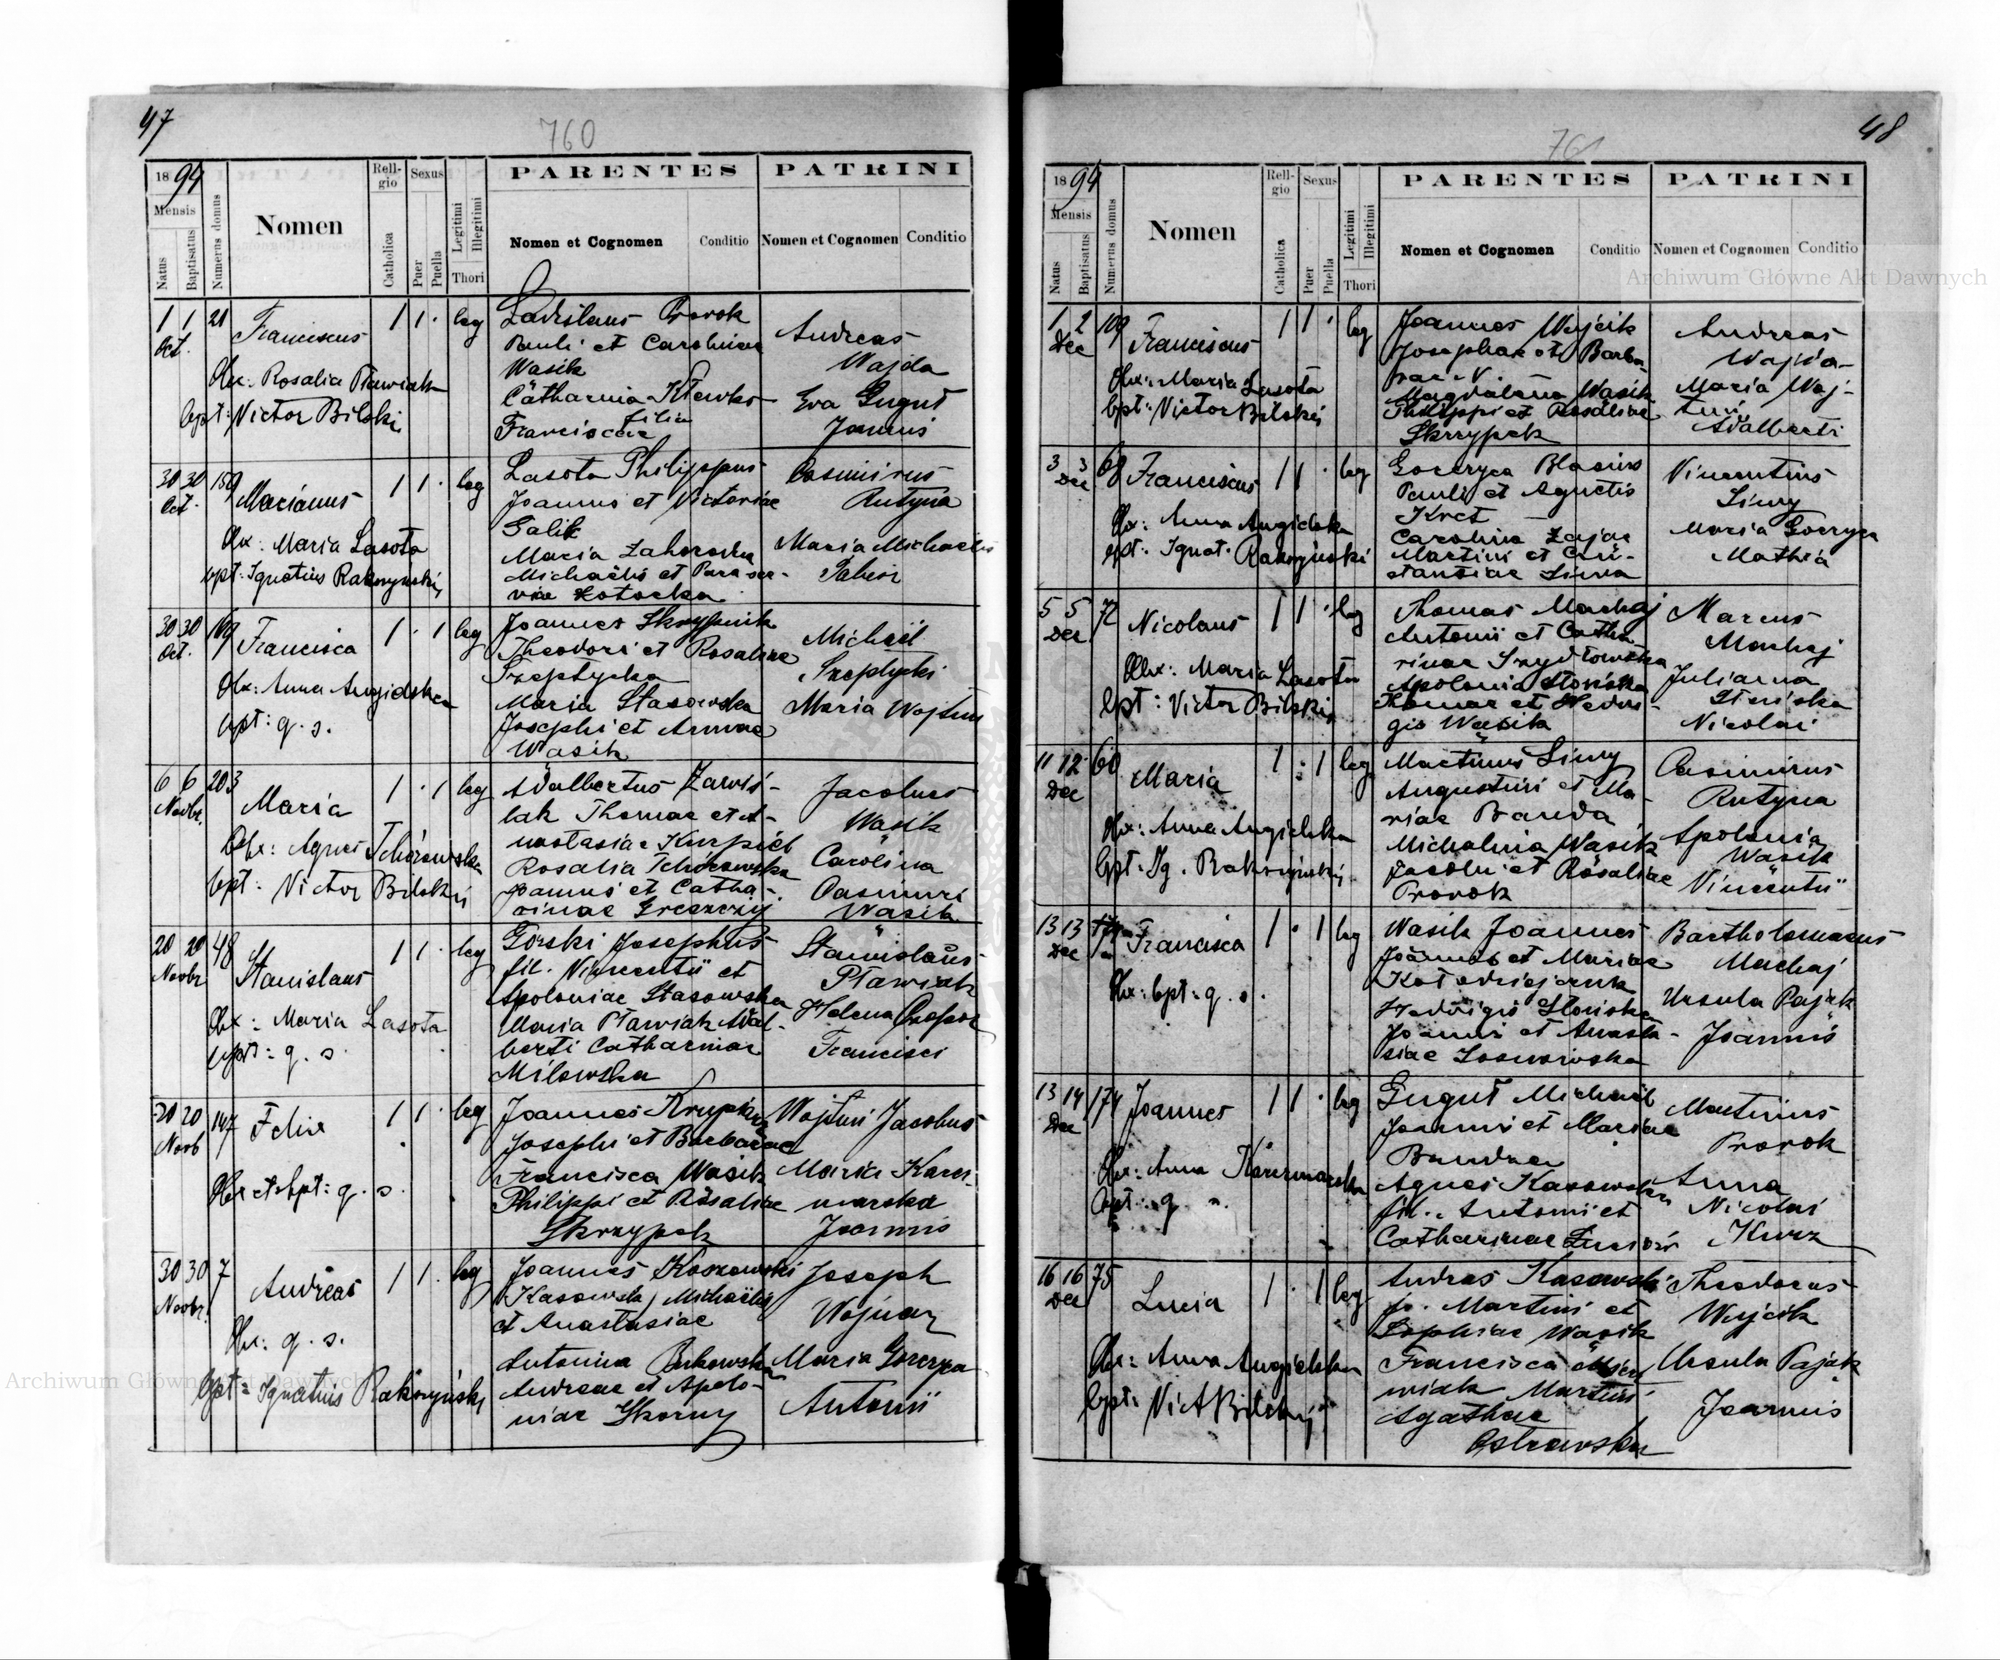 47
760
1894
Mensis
Natus
Baptisatus
Numerus domus
Nomen
Religio
Catholica
Sexus
Puer
Puella
Legitimi
Illegitimi
Thori
PARENTES
Nomen et Cognomen
Conditio
PATRINI
Nomen et Cognomen
Conditio
1 1 21 Franciscus 1 1 · leg
Oct.
Obx: Rosalia Pławiak
bpt: Victor Bilski
Ladislaus Prorok
Pauli et Carolinae
Wasik
Catharina
filia
Franciscae
Andreas
Wajda
Eva Gugut
Joannis
30 30 159 Marianus 1 1 · leg
Oct.
Obx: Maria Lasota
bpt: Ignatius Rakszyński
Lasota Philippus
Joannis et Victoriae
Galik
Maria Zahorowska
Michaelis et Parasce-
vae Kotocka
Casimirus
Rutyna
Maria Michaelis
30 30 169 Francisca 1 · 1 leg
Oct.
Obx: Anna Angielska
bpt: q. s.
Joannes Skrypnik
Theodori et Rosaliae
Szeptycka
Maria Stasowska
Josephi et Annae
Wasik
Michaël
Szeptycki
Maria Wojtuń
6 6 203 Maria 1 · 1 leg
Novbr.
Obx: Agnes Tchórowska
bpt: Victor Bilski
Adalbertus Zawiś-
lak Thomae et A-
nastasiae Kurpiel
Rosalia Tchórowska
Joannis et Catha-
rinae
Jacobus
Wasik
Carolina
Casimiri
Wasik
20 20 48 Stanislaus 1 1 · leg
Novbr
Obx: Maria Lasota
bpt: q. s.
Gorski Josephus
fil. Vincentii et
Apoloniae Stasowska
Maria Pławiak Adal-
berti Catharinae
Milowska
Stanislaus
Pławiak
Helena
Francisci
20 20 147 Felix 1 1 · leg
Novb
Obx et bpt: q. s.
Joannes Krupka
Josephi et Barbarae
Francisca Wasik
Philippi et Rosaliae
Skrzypek
Wojtuń Jacobus
Maria Karcz-
marska
Joannis
30 30 7 Andreas 1 1 · leg
Novbr.
Obx: q. s.
bpt: Ignatius Rakszyński
Joannes Kossowski
Kasowski Michaëlis
et Anastasiae
Antonina Bukowska
Andreae et Apolo-
niae Skorny
Joseph
Wojnar
Maria Gorczyca
Antonii
48
761
1894
Mensis
Natus
Baptisatus
Numerus domus
Nomen
Religio
Catholica
Sexus
Puer
Puella
Legitimi
Illegitimi
Thori
PARENTES
Nomen et Cognomen
Conditio
PATRINI
Nomen et Cognomen
Conditio
1 2 109 Franciscus 1 1 · leg
Dec
Obx: Maria Lasota
bpt: Victor Bilski
Joannes Wojcik
Josephae et Barba-
rae N.
Magdalena Wasik
Philippi et Rosaliae
Skrzypek
Andreas
Wajda
Maria Woj-
tuń
Adalberti
3 3 68 Franciscus 1 1 · leg
Dec
Obx: Anna Angielska
bpt: Ignat. Rakszyński
Gorczyca Blasius
Pauli et Agnetis
Kret
Carolina Zając
Martini et Con-
stantiae Siwa
Vincentius
Siwy
Maria Gorczyca
Mathiä
5 5 72 Nicolaus 1 1 · leg
Dec
Obx: Maria Lasota
bpt: Victor Bilski
Thomas Machaj
Antonii et Catha-
rinae Szydłowska
Apolonia Słońska
Thomae et Hedvi-
gis Wasik
Marcus
Machaj
Julianna
Nicolai
11 12 60 Maria 1 · 1 leg
Dec
Obx: Anna Angielska
bpt: Ig. Rakszyński
Martinus Siwy
Augustini et Ma-
riae Banda
Michalina Wasik
Jacobi et Rosaliae
Prorok
Casimirus
Rutyna
Apolonia
Wasik
Vincentii
13 13 Francisca 1 · 1 leg
Dec
Obx: bpt: q. s.
Wasik Joannes
Joannes et Mariae
Kołodziejczuk
Hedvigis Słońska
Joannis et Anasta-
siae
Bartholomaeus
Machaj
Ursula Pająk
Joannis
13 14 174 Joannes 1 1 · leg
Dec
Obx: Anna Karczmarska
bpt: q. s.
Gugut Michaël
Joannis et Mariae
Agnes Kasowska
fil. Antoni et
Catharinae
Martinus
Prorok
Anna
Nicolai
Kurz
16 16 75 Lucia 1 · 1 leg
Dec
Obx: Anna Angielska
bpt: Vict Bilski
Andreas Kasowski
fil. Martini et
Sophiae Wasik
Francisca
Martini
Agathae
Ostrowska
Theodorus
Wojcik
Ursula Pająk
Joannis
Archiwum Główne Akt Dawnych
Archiwum Główne Akt Dawnych